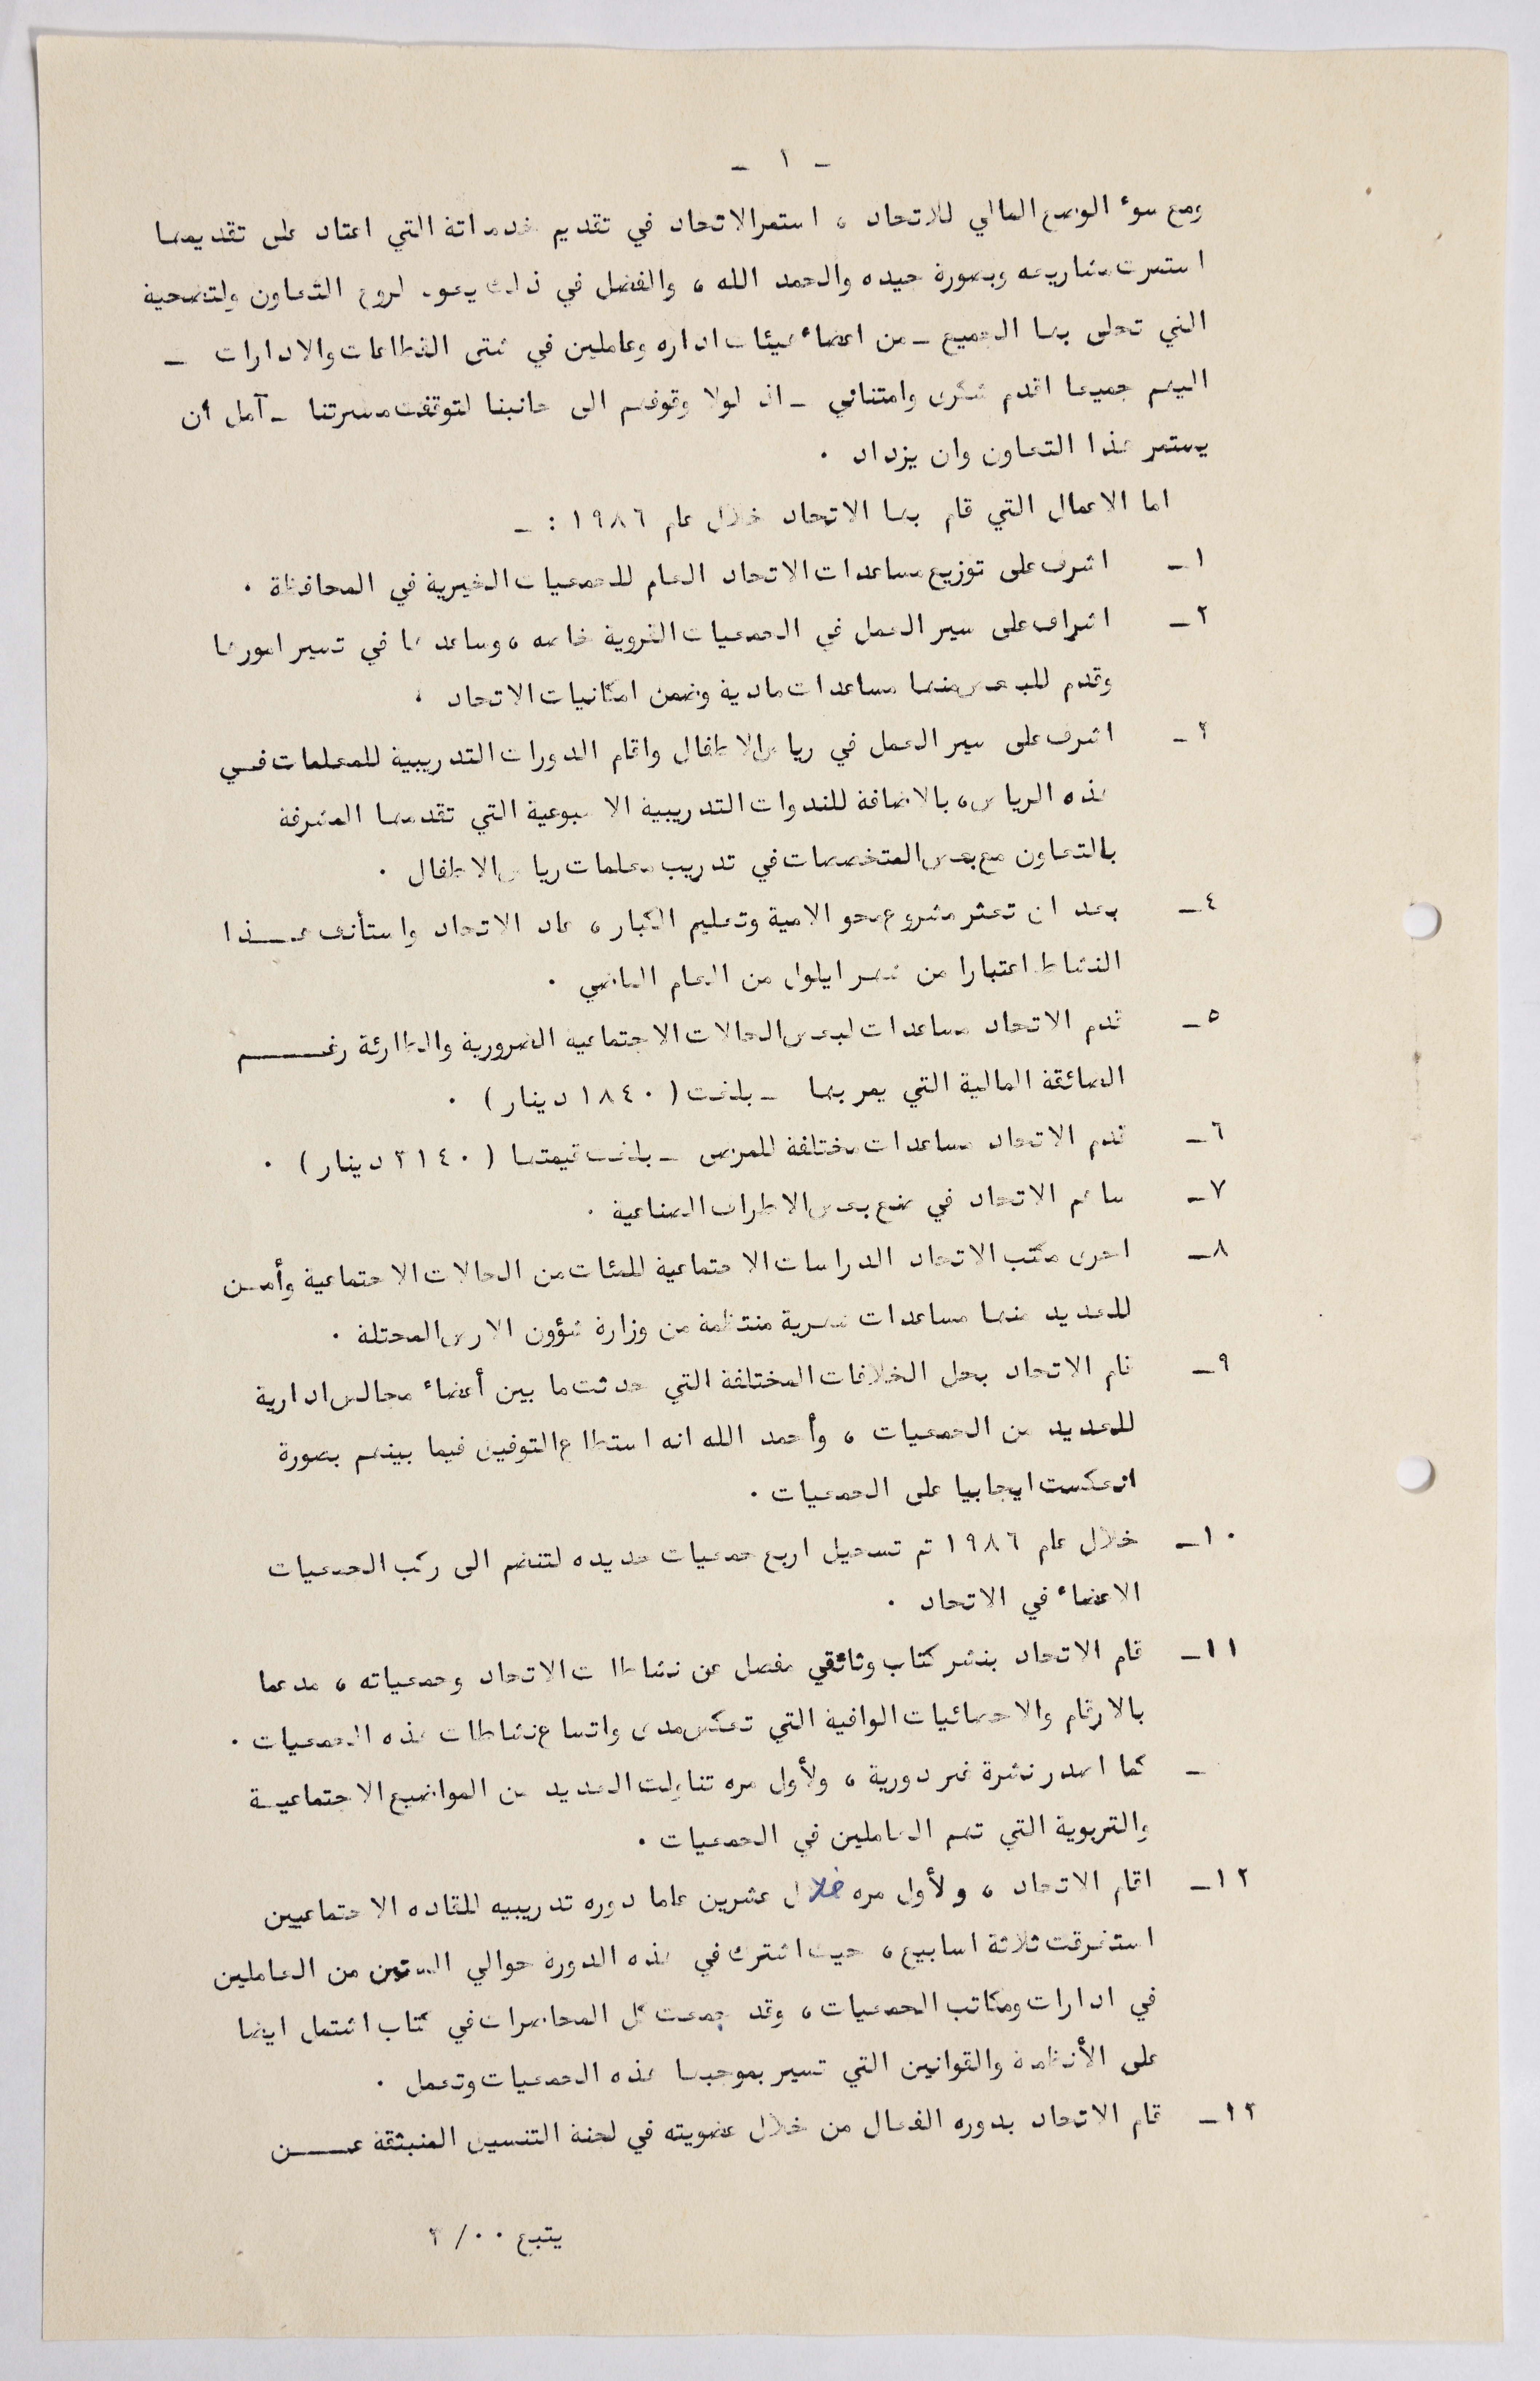 - ١ -
ومع سوء الوضع المالي للاتحاد ، استمر الاتحاد في تقديم خدماته التي اعتاد على تقديمها
استمرت مشاريعه وبصورة جيده والحمد الله ، والفضل في ذلك يعود لروح التعاون ولتضحية
التي تحلى بها الجميع - من اعضاء هيئات اداره وعاملين في شتى القطاعات والادارات -
اليهم جميعا اقدم شكرى وامتناني - اذ لولا وقوفهم الى جانبنا لتوقفت مسرتنا - آمل أن
يستمر هذا التعاون وان يزداد .
اما الاعمال التي قام بها الاتحاد خلال عام ١٩٨٦ : -
١- اشرف على توزيع مساعدات الاتحاد العام للجمعيات الخيرية في المحافظة .
٢- اشراف على سير العمل في الجمعيات القروية خاصه ، وساعدها في تسير امورها
وقدم للبعض منها مساعدات مادية وضمن امكانيات الاتحاد .
٣- اشرف على سير العمل في رياض الاطفال واقام الدورات التدريبية للمعلمات فــي
هذه الرياض ، بالاضافة للندوات التدريبية الاسبوعية التي تقدمها المشرفة
بالتعاون مع بعض المتخصصات في تدريب معلمات رياض الاطفال .
٤- بعد ان تعثر مشروع محو الامية وتعليم الكبار ، عاد الاتحاد واستأنف هـــذا
النشاط اعتبارا من شهر ايلول من العام الماضي .
٥- قدم الاتحاد مساعدات لبعض الحالات الاجتماعيه الضرورية والطارئة رغـــــم
الضائقة المالية التي يمر بها - بلغت ( ١٨٤٠ دينار ) .
٦- قدم الاتحاد مساعدات مختلفة للمرضى - بلغت قيمتها ( ٣١٤٠ دينار ) .
٧- ساهم الاتحاد في صنع بعض الاطراف الصناعية .
٨- اجرى مكتب الاتحاد الدراسات الاجتماعية للمئات من الحالات الاجتماعية وأمــن
للعديد منها مساعدات شهرية منتظمة من وزارة شؤون الارض المحتلة .
٩- قام الاتحاد بحل الخلافات المختلفة التي حدثت ما بين أعضاء مجالس ادارية
للعديد من الجمعيات ، وأحمد الله انه استطاع التوفيق فيما بينهم بصورة
انعكست ايجابيا على الجمعيات .
١٠- خلال عام ١٩٨٦ تم تسجيل اربع جمعيات جديده لتنضم الى ركب الجمعيات
الاعضاء في الاتحاد .
١١- قام الاتحاد بنشر كتاب وثائقي مفصل عن نشاطات الاتحاد وجمعياته ، مدعما
بالارقام والاحصائيات الوافية التي تعكس مدى واتساع نشاطات هذه الجمعيات .
- كما اصدر نشرة غير دورية ، ولأول مره تناولت العديد من المواضيع الاجتماعيــة
والتربوية التي تهم العاملين في الجمعيات .
١٢- اقام الاتحاد ، ولأول مره خلال عشرين عاما دوره تدريبيه للقاده الاجتماعيين
استغرقت ثلاثة اسابيع ، حيث اشترك في هذه الدورة حوالي الستين من العاملين
في ادارات ومكاتب الجمعيات ، وقد جمعت كل المحاضرات في كتاب اشتمل ايضا
على الأنظمة والقوانين التي تسير بموجبها هذه الجمعيات وتعمل .
١٣- قام الاتحاد بدوره الفعال من خلال عضويته في لجنة التنسيق المنبثقة عـــــن
يتبع ٠٠ / ٣